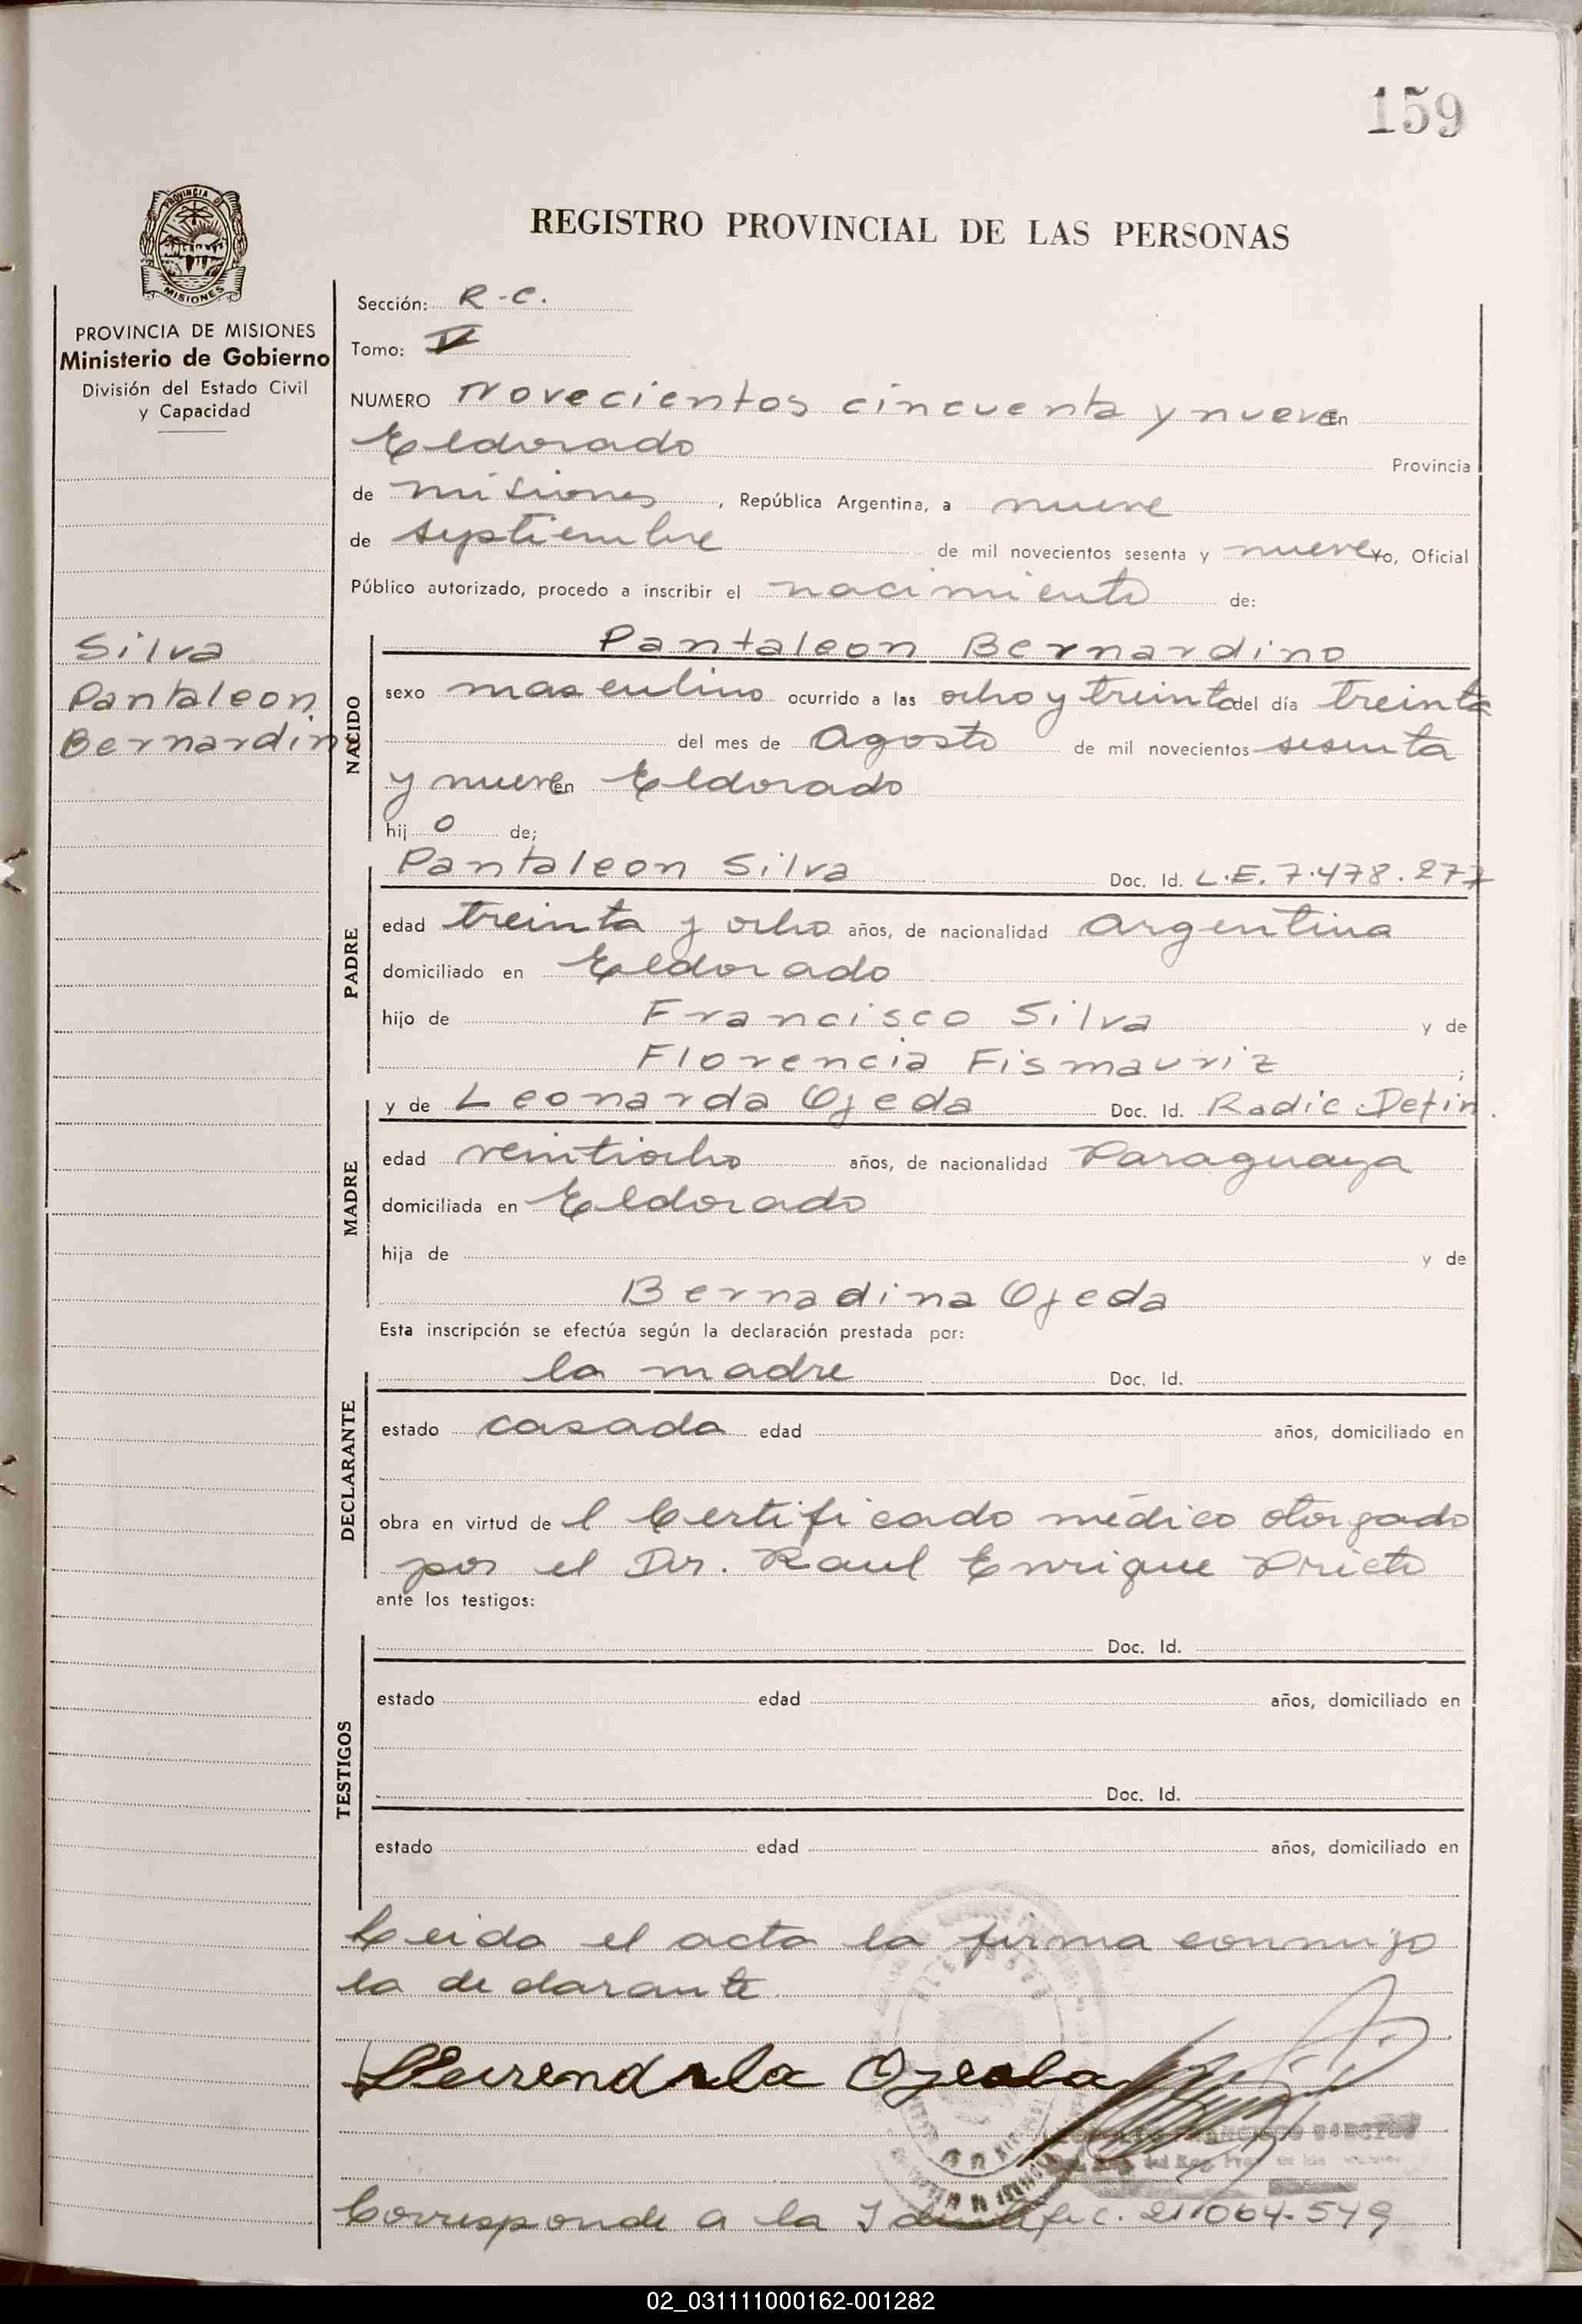 159
PROVINCIA DE
MISIONES
REGISTRO PROVINCIAL DE LAS PERSONAS
PROVINCIA DE MISIONES
Ministerio de Gobierno
División del Estado Civil
y Capacidad
Silva
Pantaleon
Bernardin
Sección: R-C.
Tomo: V
NUMERO Novecientos cincuenta y nueve En
Eldorado Provincia
de misiones, República Argentina, a nueve
de septiembre de mil novecientos sesenta y nueve Yo, Oficial
Público autorizado, procedo a inscribir el nacimiento de:
NACIDO
Pantaleon Bernardino
sexo masculino ocurrido a las ocho y treinta del día treinta
del mes de Agosto de mil novecientos sesenta
y nueve en Eldorado
hij o de;
PADRE
Pantaleon Silva Doc. Id. L.E. 7.478.277
edad treinta y ocho años, de nacionalidad Argentina
domiciliado en Eldorado
hijo de Francisco Silva y de
Florencia Fismauriz ;
MADRE
y de Leonarda Ojeda Doc. Id. Radic. Defin.
edad veintiocho años, de nacionalidad Paraguaya
domiciliada en Eldorado
hija de y de
Bernadina Ojeda
Esta inscripción se efectúa según la declaración prestada por:
DECLARANTE
la madre Doc. Id.
estado casada edad años, domiciliado en
obra en virtud de l Certificado médico otorgado
por el Dr. Raul Enrique Prieto
ante los testigos:
TESTIGOS
Doc. Id.
estado edad años, domiciliado en
Doc. Id.
estado edad años, domiciliado en
Leida el acta la firma conmigo
la declarante
Ojeda
Corresponde a la Identific. 21.064.549
02_031111000162-001282